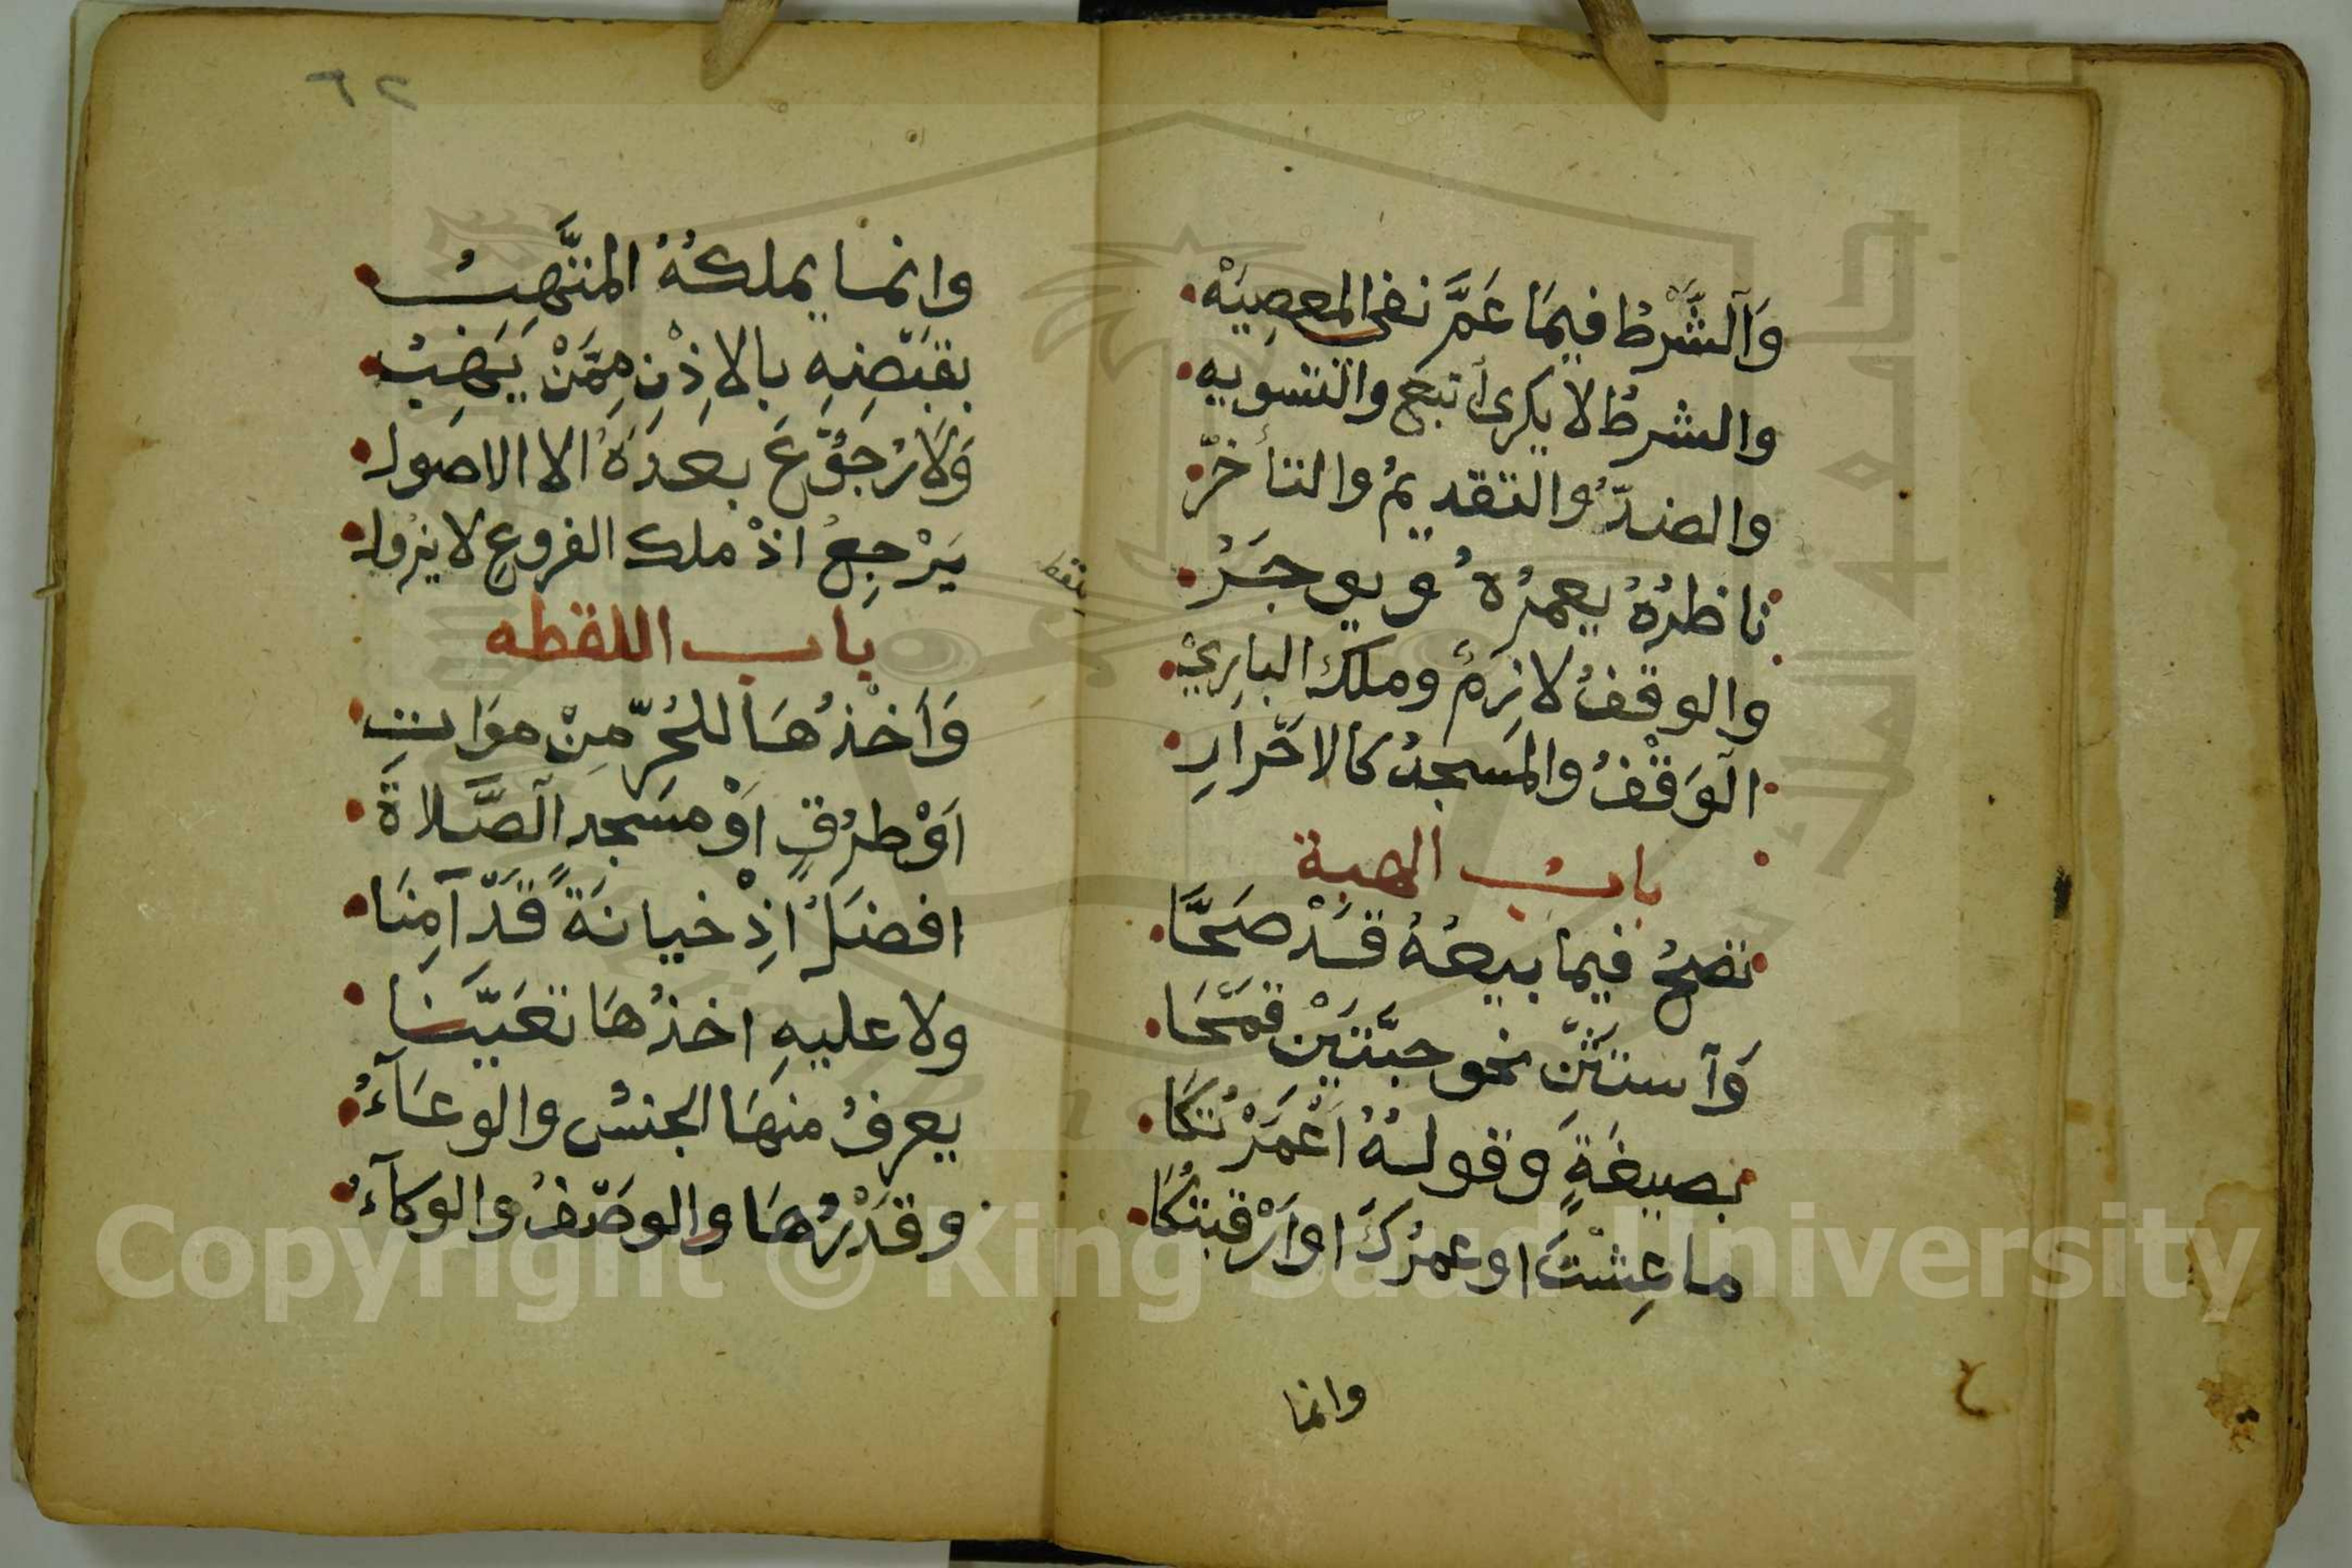 وَالشَّرْطُ فيمَا عَمَّ نفى المعصِيَهْ
والشرطُ لا يكرى أتبع والتسويه
والضدُّ والتقديمُ والتأخّر
ناظرُهُ يعمرُهُ ويوجَرُ
والوقفُ لازمٌ وملك البارِي
الوَقْفُ والمسجدُ كالاحْرارِ
بابُ الهبة
تصحُ فيما بيعُهُ قَدْ صَحَّا
وَاستَثْن نحو حبَّتَيْن قمْحَا
بصيغَةٍ وقولُهُ اعْمَرْتُكَا
ما عِشْتَ او عمرُكَ او ارْقبتُكَا
وانما
٦٢
وانما يملكُهُ المتَّهِبُ
بقبْضِهِ بالاِذْنِ مِمَّنْ يَهِبُ
وَلَا رُجُوْعَ بعدَهُ الا الاصول
يَرْجِعُ اذْ ملك الفروعِ لا يزول
باب اللقطه
وَاَخْذُهَا للحُرِّ مِنْ موَاتِ
اَوْ طرُقٍ اَوْ مسجدِ الصَّلاةِ
افضَلُ اِذْ خيانَةً قَدْ آمِنَا
ولا عليهِ اخذُهَا تعَيَّنَا
يعرفُ منهَا الجنسُ والوعَآءُ
وقَدْرُهَا والوصْفُ والوكآءُ
Copyright © King Saud University